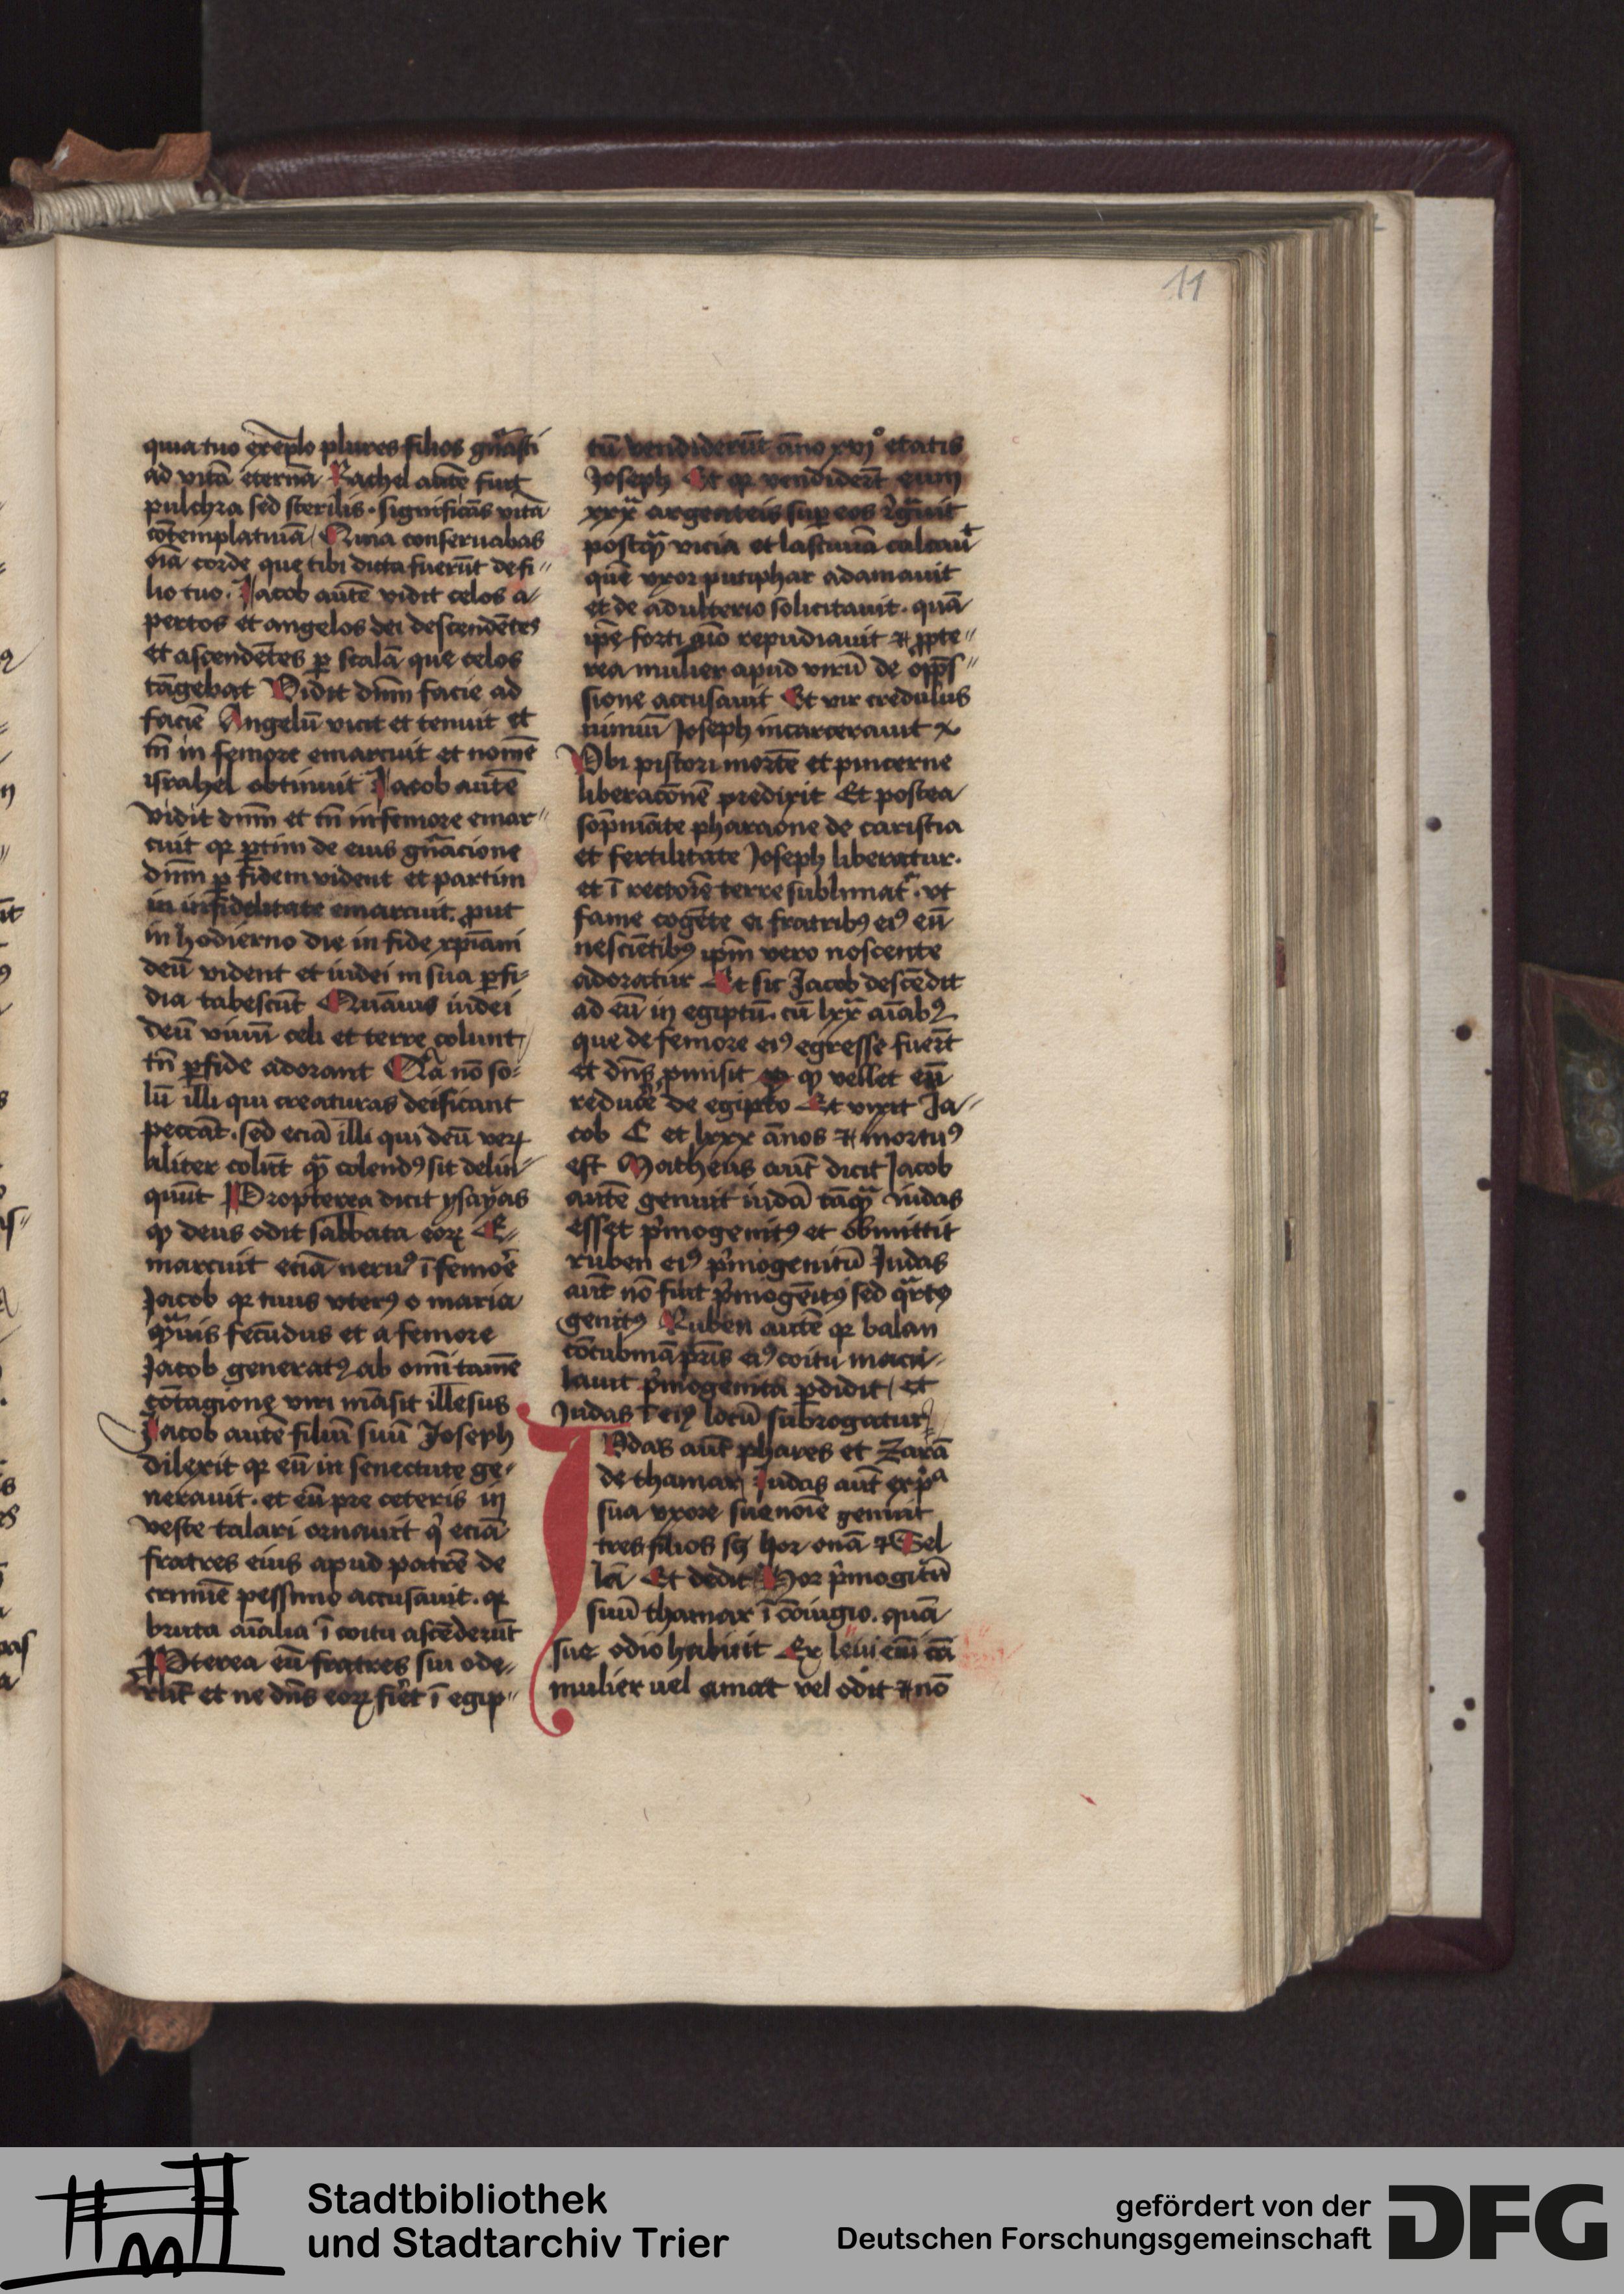 11
quia tuo exēplo plures filios gn̄asti
ad vitā eternā Rachel autē fuit
pulchra sed sterilis · significās vitā
cōtemplatiuā / Quia conseruabas
oīa corde que tibi dicta fuerūt de fi〃
lio tuo · Jacob autē vidit celos a-
pertos et angelos dei descendētes
et ascendētes ꝑ scalā que celos
tāgebat Vidit dn̄m facie ad
faciē Angelū vicit et tenuit et
tn̄ in femore emarcuit et nomē
israhel obtinuit Jacob autē
vidit dn̄m et tn̄ in femore emar〃
cuit qꝛ ꝑtim de eius gn̄acione
dn̄m ꝑ fidem vident et partim
in infidelitate emarcuit · ꝓut
in hodierno die in fide xp̄iani
deū vident et iudei in sua ꝑfi-
dia tabescūt Quāuis iudei
deū viuū celi et terre colunt /
tn̄ ꝑfide adorant Nā nō so-
lū illi qui creaturas deificant
peccāt · sed eciā illi qui deū veꝝ
aliter colūt qͣ̄ colendꝰ sit delin-
quūt Propterea dicit ysayas
ꝙ deus odit sabbata eoꝝ E-
marcuit eciā neruꝰ ī femoꝛe
Jacob qꝛ tuus vterꝰ o maria
qͣ̄uis fecūdus et a femore
Jacob generatꝰ ab omī tamē
cōtagione viri māsit illesus
Jacob autē filiū suū Joseph
dilexit qꝛ eū in senectute ge-
nerauit · et eū pre ceteris in
veste talari ornauit qͥ eciā
fratres eius apud patrē de
crimīe pessimo accusauit · qꝛ
bruta aīalia ī coitu ascēderūt
Ꝓpterea eū fratres sui ode-
rūt et ne dn̄s eoꝝ fiet ī egip〃
tū vendiderūt āno xvjº etatis
Joseph Et qꝛ vendiderūt eum
xxx argenteis super eos rͤgͣuit
postqͣ̄ vicia et lasciuiā calcauͭ
quē vxor putiphar adamauit
et de adulterio solicitauit · quā
ip̄e forti aīo repudiauit ⁊ ꝓpte〃
rea mulier apud virū de opp̄s〃
sione accusauit Et vir credulus
nimiū Joseph incarcerauit
Vbi pistori mortē et pincerne
liberacōnē predixit Et postea
sop̄niāte pharaone de caristia
et fertilitate Joseph liberatur ·
et ī rectorē terre sublimatͬ · vt
fame cogēte a fratribꝰ eiꝰ eū
nesciētibꝰ ip̄m vero noscente
adoratur Et sic Jacob descēdit
ad eū in egiptū · cū lxxͣ aīabꝰ
que de femore eiꝰ egresse fuerūt
et dn̄s ꝓmisit ꝙ vellet eū
reducē de egipto Et vixit Ja〃
cob C et lxxx ānos ⁊ mortuꝰ
est Matheus aūt dicit Jacob
autē genuit iudā tāqͣ̄ iudas
esset pͥmogenitꝰ et obmittit
ruben eiꝰ pͥmogenitū Judas
aūt nō fuit pͥmogēitꝰ sed qͣrtꝰ
genitꝰ Ruben autē qꝛ balan
cōcubinā pr̄is eiꝰ coitu macu-
lauit pͥmogenita ꝑdidit / et
Judas ī eiꝰ locū subrogatur
JVdas aūt phares et zarā
de thamar Judas aūt ex pͥa
sua vxore sue noīe genuit
tres filios sꝫ hor onā ⁊ Sel
lā Et dedit Hor pͥmogitū
suū thamar ī cōiugio · quā
sue odio habuit Ex leui eī cā
mulier uel amat vel odit ⁊ nō
Stadtbibliothek
und Stadtarchiv Trier
gefördert von der
Deutschen Forschungsgemeinschaft
DFG